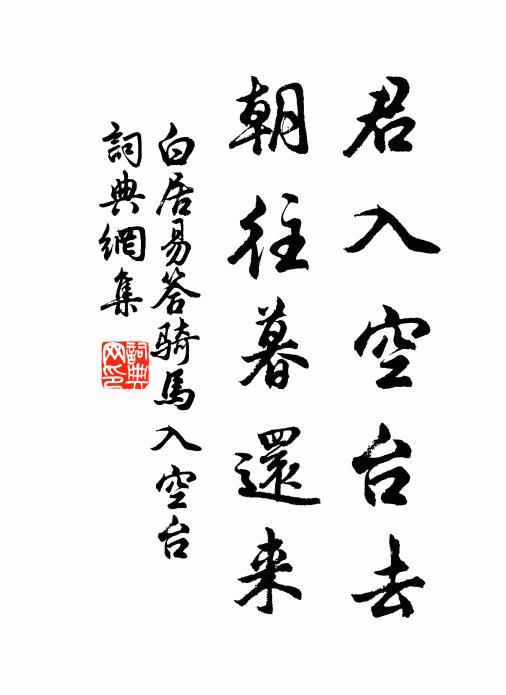 君入空台去
朝往暮還来
白居易答骑馬入空台
詞典網集
詞典網印